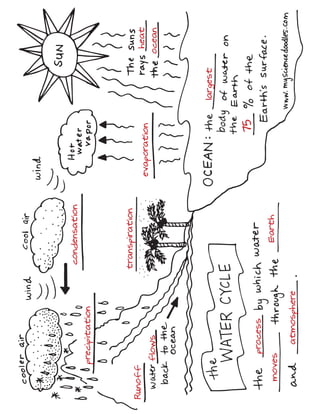 SUN
The Suns
rays heat
the ocean
Hot
water
vapor
wind
cool air
wind
cooler air
evaporation
condensation
transpiration
precipitation
Runoff
water flows
back to the
ocean
OCEAN: the largest
body of water on
the Earth
75 % of the
Earth's surface.
www.mysciencedoodles.com
the
WATER CYCLE
the process by which water
moves through the Earth
and atmosphere.